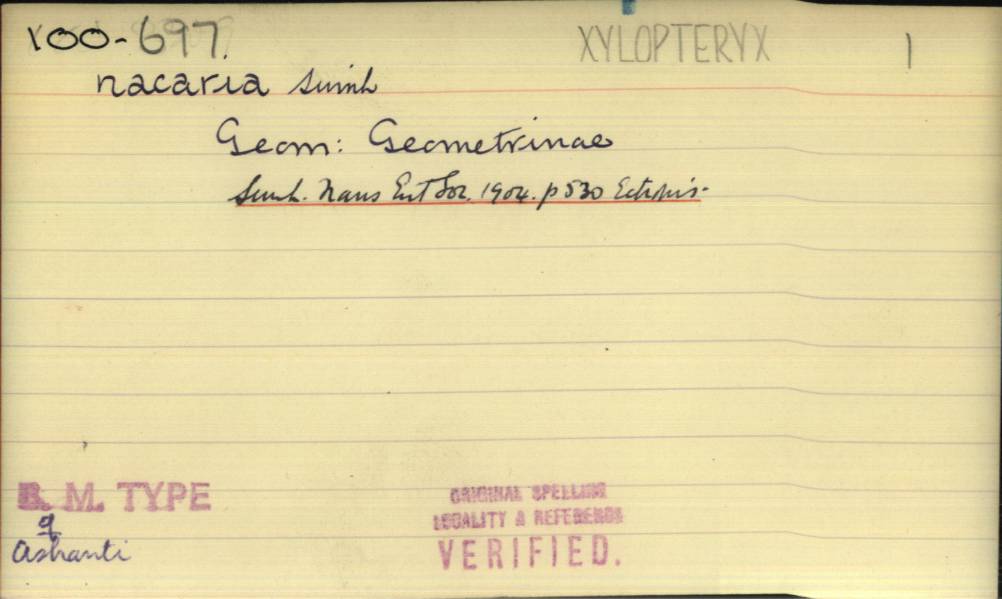 100-697. XYLOPTERYX 1
nacaria Swinh
Geom: Geometrinae
Swinh. Trans Ent Soc. 1904. p 530 Ectropis.
B. M. TYPE
♀
Ashanti
ORIGINAL SPELLING
LOCALITY & REFERENCE
VERIFIED.